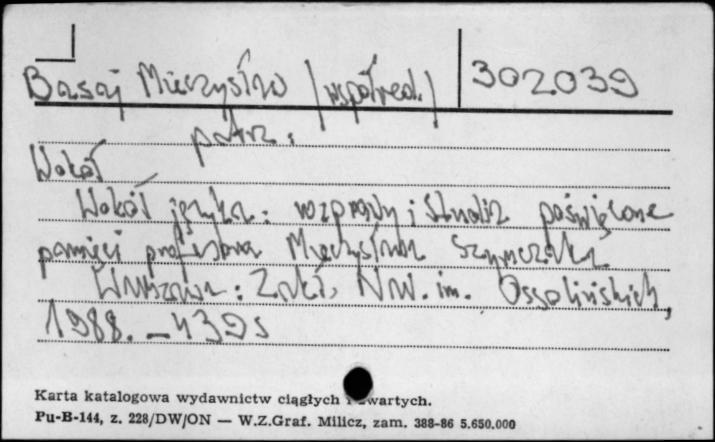 Basaj Mieczysław /współred./ 302039
patrz.
Wokół
Wokół języka: rozprawy i studia poświęcone
pamięci profesora Mieczysława Szymczaka
Warszawa: Zakł. Nar. im. Ossolińskich,
1988. – 439 s
Karta katalogowa wydawnictw ciągłych i zwartych.
Pu-B-144, z. 228/DW/ON — W.Z.Graf. Milicz, zam. 388-86 5.650.000